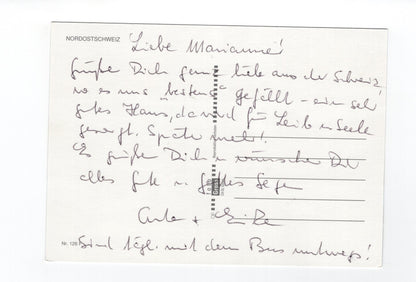 NORDOSTSCHWEIZ
Liebe Marianne!
Grüße Dich ganz lieb aus der Schweiz,
wo es uns bestens gefällt - ein sehr
gutes Haus, da wird für Leib u Seele
gesorgt. Später mehr!
Es grüßen Dich u wünschen Dir
alles Gute u. Gottes Segen
+
Nr. 126
Sind tägl. mit dem Bus unterwegs!